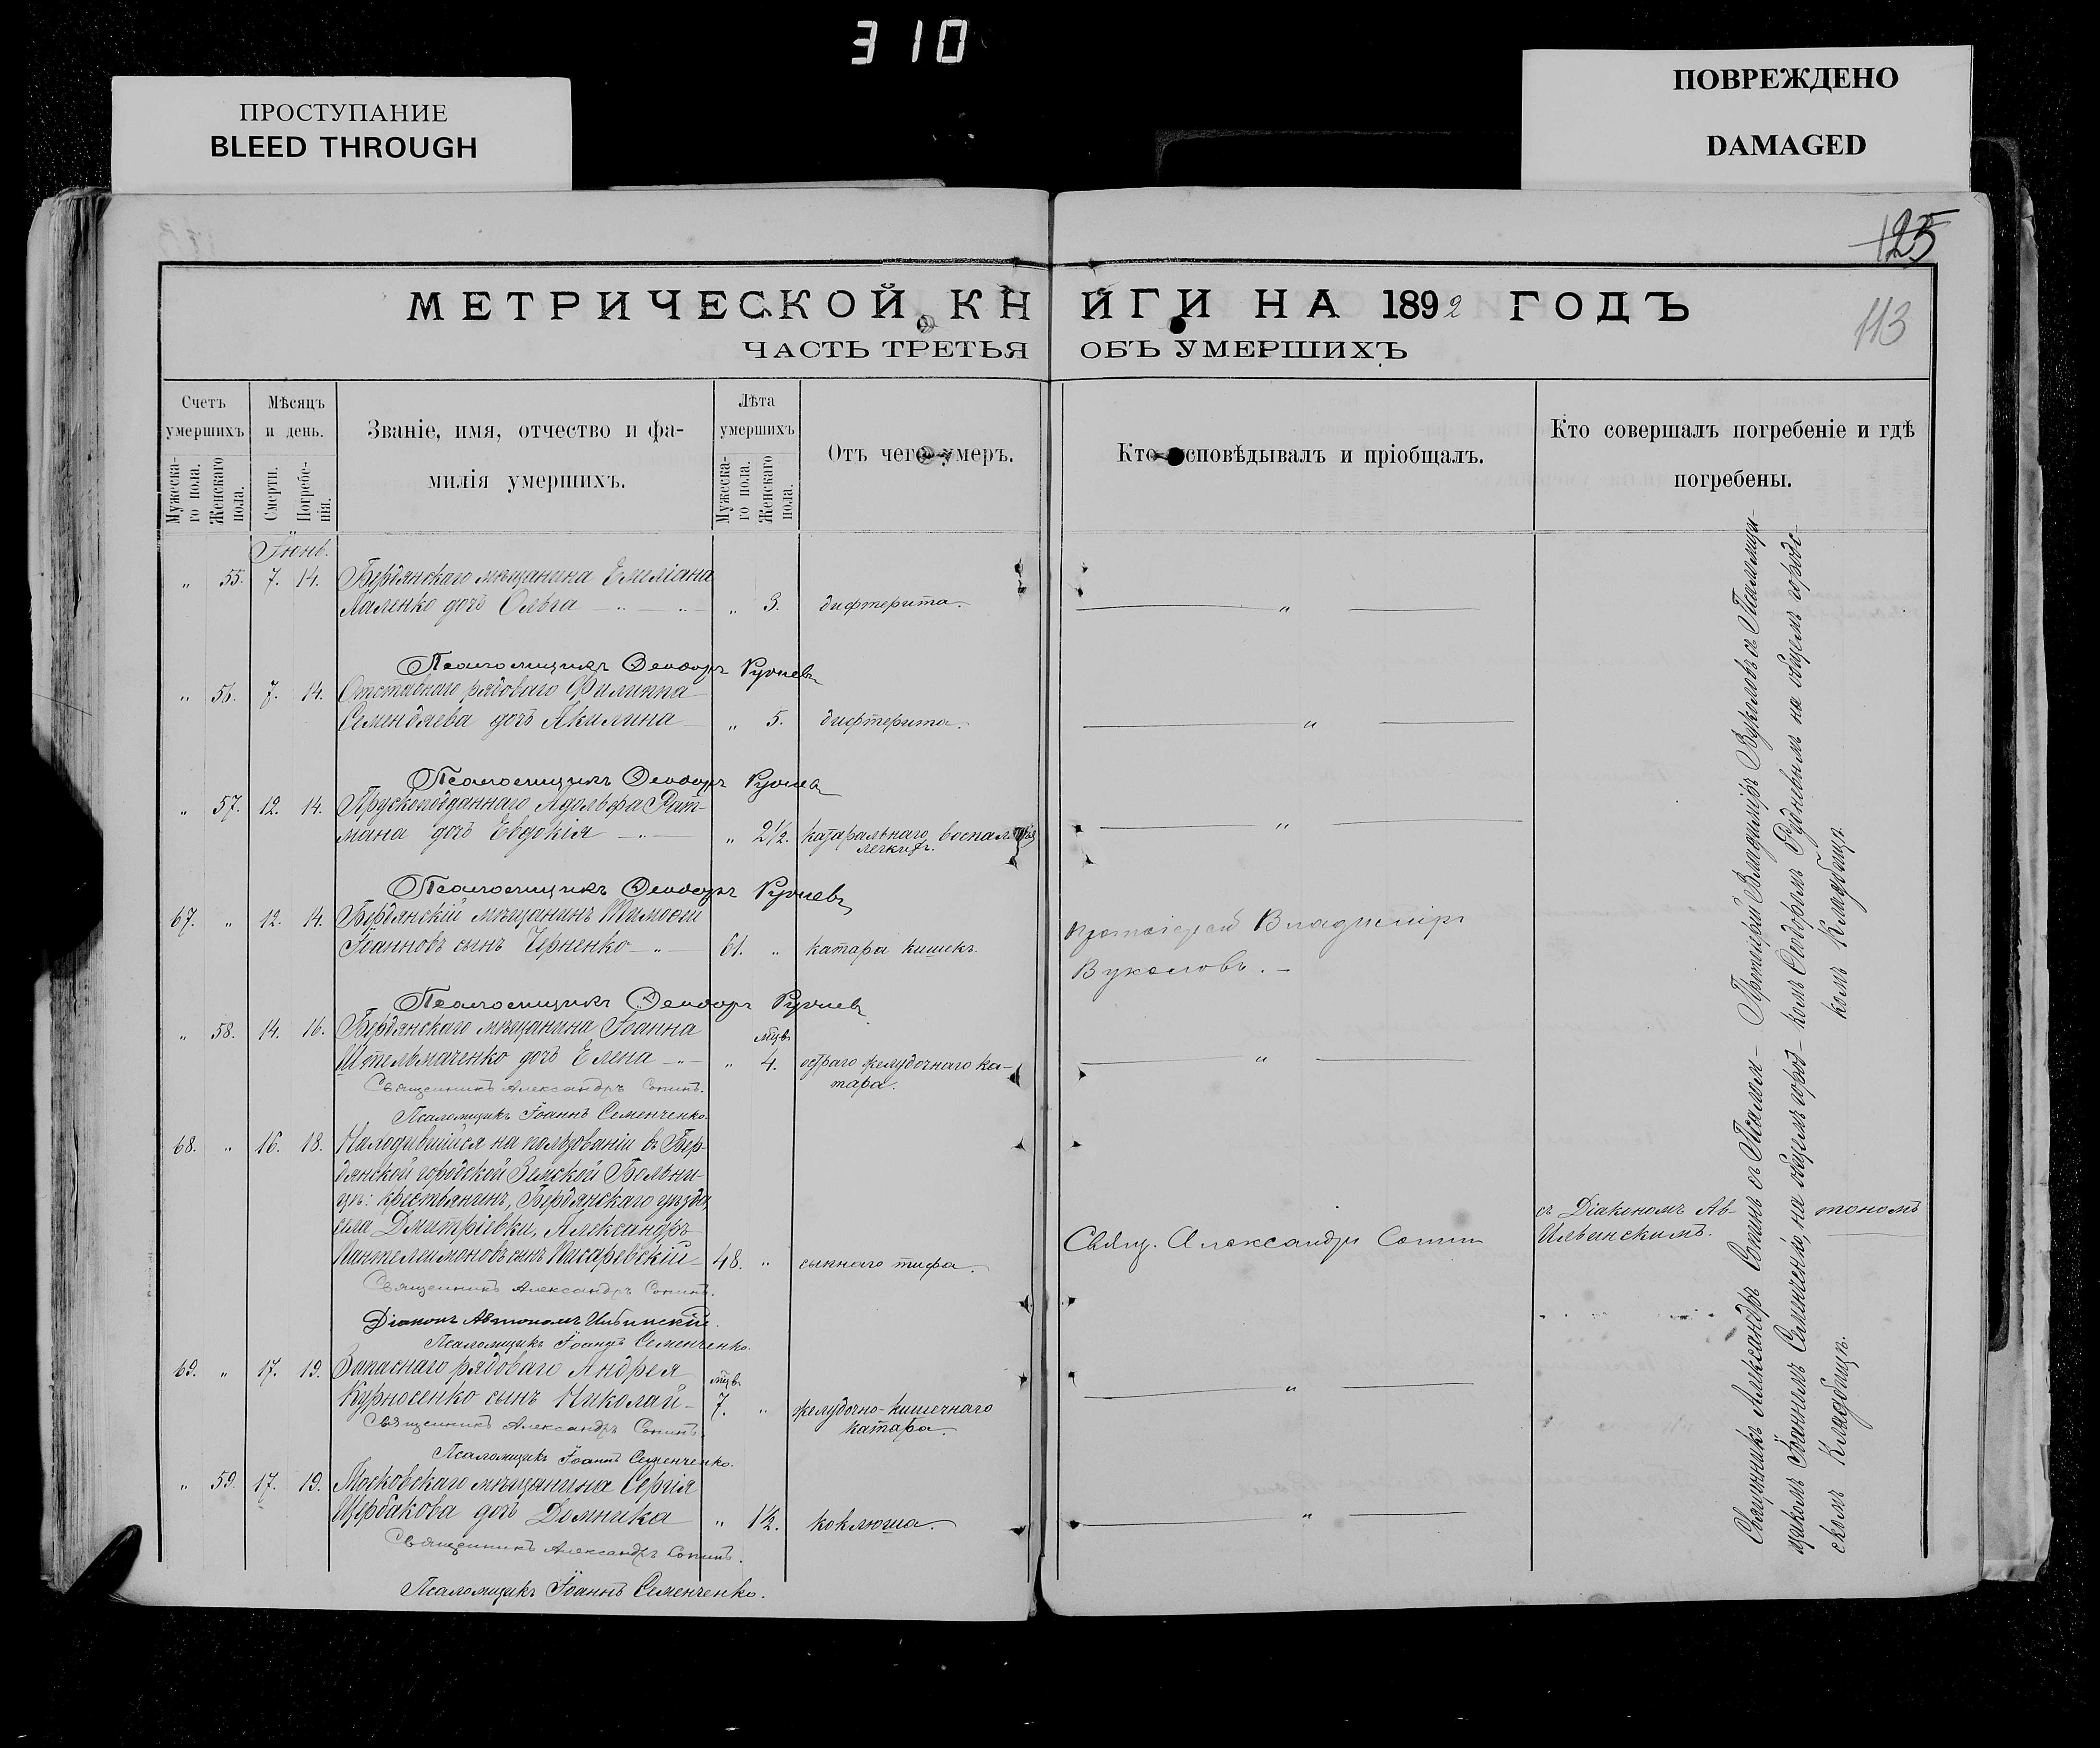 310
ПРОСТУПАНИЕ
BLEED THROUGH
ПОВРЕЖДЕНО
DAMAGED
125
113
МЕТРИЧЕСКОЙ КНИГИ НА 1892 ГОДЪ
ЧАСТЬ ТРЕТЬЯ ОБЪ УМЕРШИХЪ
Счетъ умершихъ
Мужеска-го пола.
Женскаго пола.
Мѣсяцъ и день.
Смерти.
Погребе-нія.
Званіе, имя, отчество и фа-
милія умершихъ.
Лѣта умершихъ
Мужеска-го пола.
Женскаго пола.
Отъ чего умеръ.
Кто исповѣдывалъ и пріобщалъ.
Кто совершалъ погребеніе и гдѣ
погребены.
Іюнь.
„ 55. 7. 14. Бердянскаго мѣщанина Емиліана
Паленко дочь Ольга „ 3. дифтерита. „
Псаломщикъ Ѳеодоръ Руднев
„ 56. 7. 14. Отставнаго рядоваго Филиппа
Семендяева дочь Акилина „ 5. дифтерита. „
Псаломщикъ Ѳеодоръ Руднев
„ 57. 12. 14. Прускоподданнаго Адольфа Рит-
мана дочь Евдокія „ 2½. катаральнаго воспаленія
легкихъ. „
Псаломщикъ Ѳеодоръ Рудневъ
67. „ 12. 14. Бердянскій мѣщанинъ Тимоѳей
Іоанновъ сынъ Черненко 61. „ катара кишекъ.
Протоіерей Владиміръ
Вуколовъ.
Псаломщикъ Ѳеодоръ Руднев
„ 58. 14. 16. Бердянскаго мѣщанина Іоанна мѣсв.
Штельмаченко дочь Елена „ 4. остраго желудочнаго ка-
тара. „
Священникъ Александръ Сопинъ.
Псаломщикъ Іоаннъ Семенченко.
68. „ 16. 18. Находившійся на пользованіи въ Бер-
дянской городской Земской Больни-
цѣ: крестьянинъ, Бердянскаго уѣзда,
села Дмитріевки, Александръ
Пантелеимоновъ сынъ Писаревскій 48. „ сыпнаго тифа.
Свящ. Александръ Сопин
съ Діакономъ Ав-тономъ
Ильинскимъ.
Священникъ Александръ Сопинъ.
Діаконъ Автономъ Ильинскій.
Псаломщикъ Іоаннъ Семенченко.
69. „ 17. 19. Запаснаго рядоваго Андрея мѣсв.
Курносенко сынъ Николай 7. „ желудочно-кишечнаго
катара. „
Священникъ Александръ Сопинъ.
Псаломщикъ Іоаннъ Семенченко.
„ 59. 17. 19. Московскаго мѣщанина Сергія
Щербакова дочь Домника „ 1½. коклюша. „
Священникъ Александръ Сопинъ.
Псаломщикъ Іоаннъ Семенченко.
Протоіерей Владиміръ Вуколовъ съ Псаломщи-
комъ Ѳеодоромъ Рудневымъ на общемъ городс-
комъ Кладбищѣ.
Священникъ Александръ Сопинъ съ Псалом-
щикомъ Іоанномъ Семенченко, на общемъ город-
скомъ Кладбищѣ.